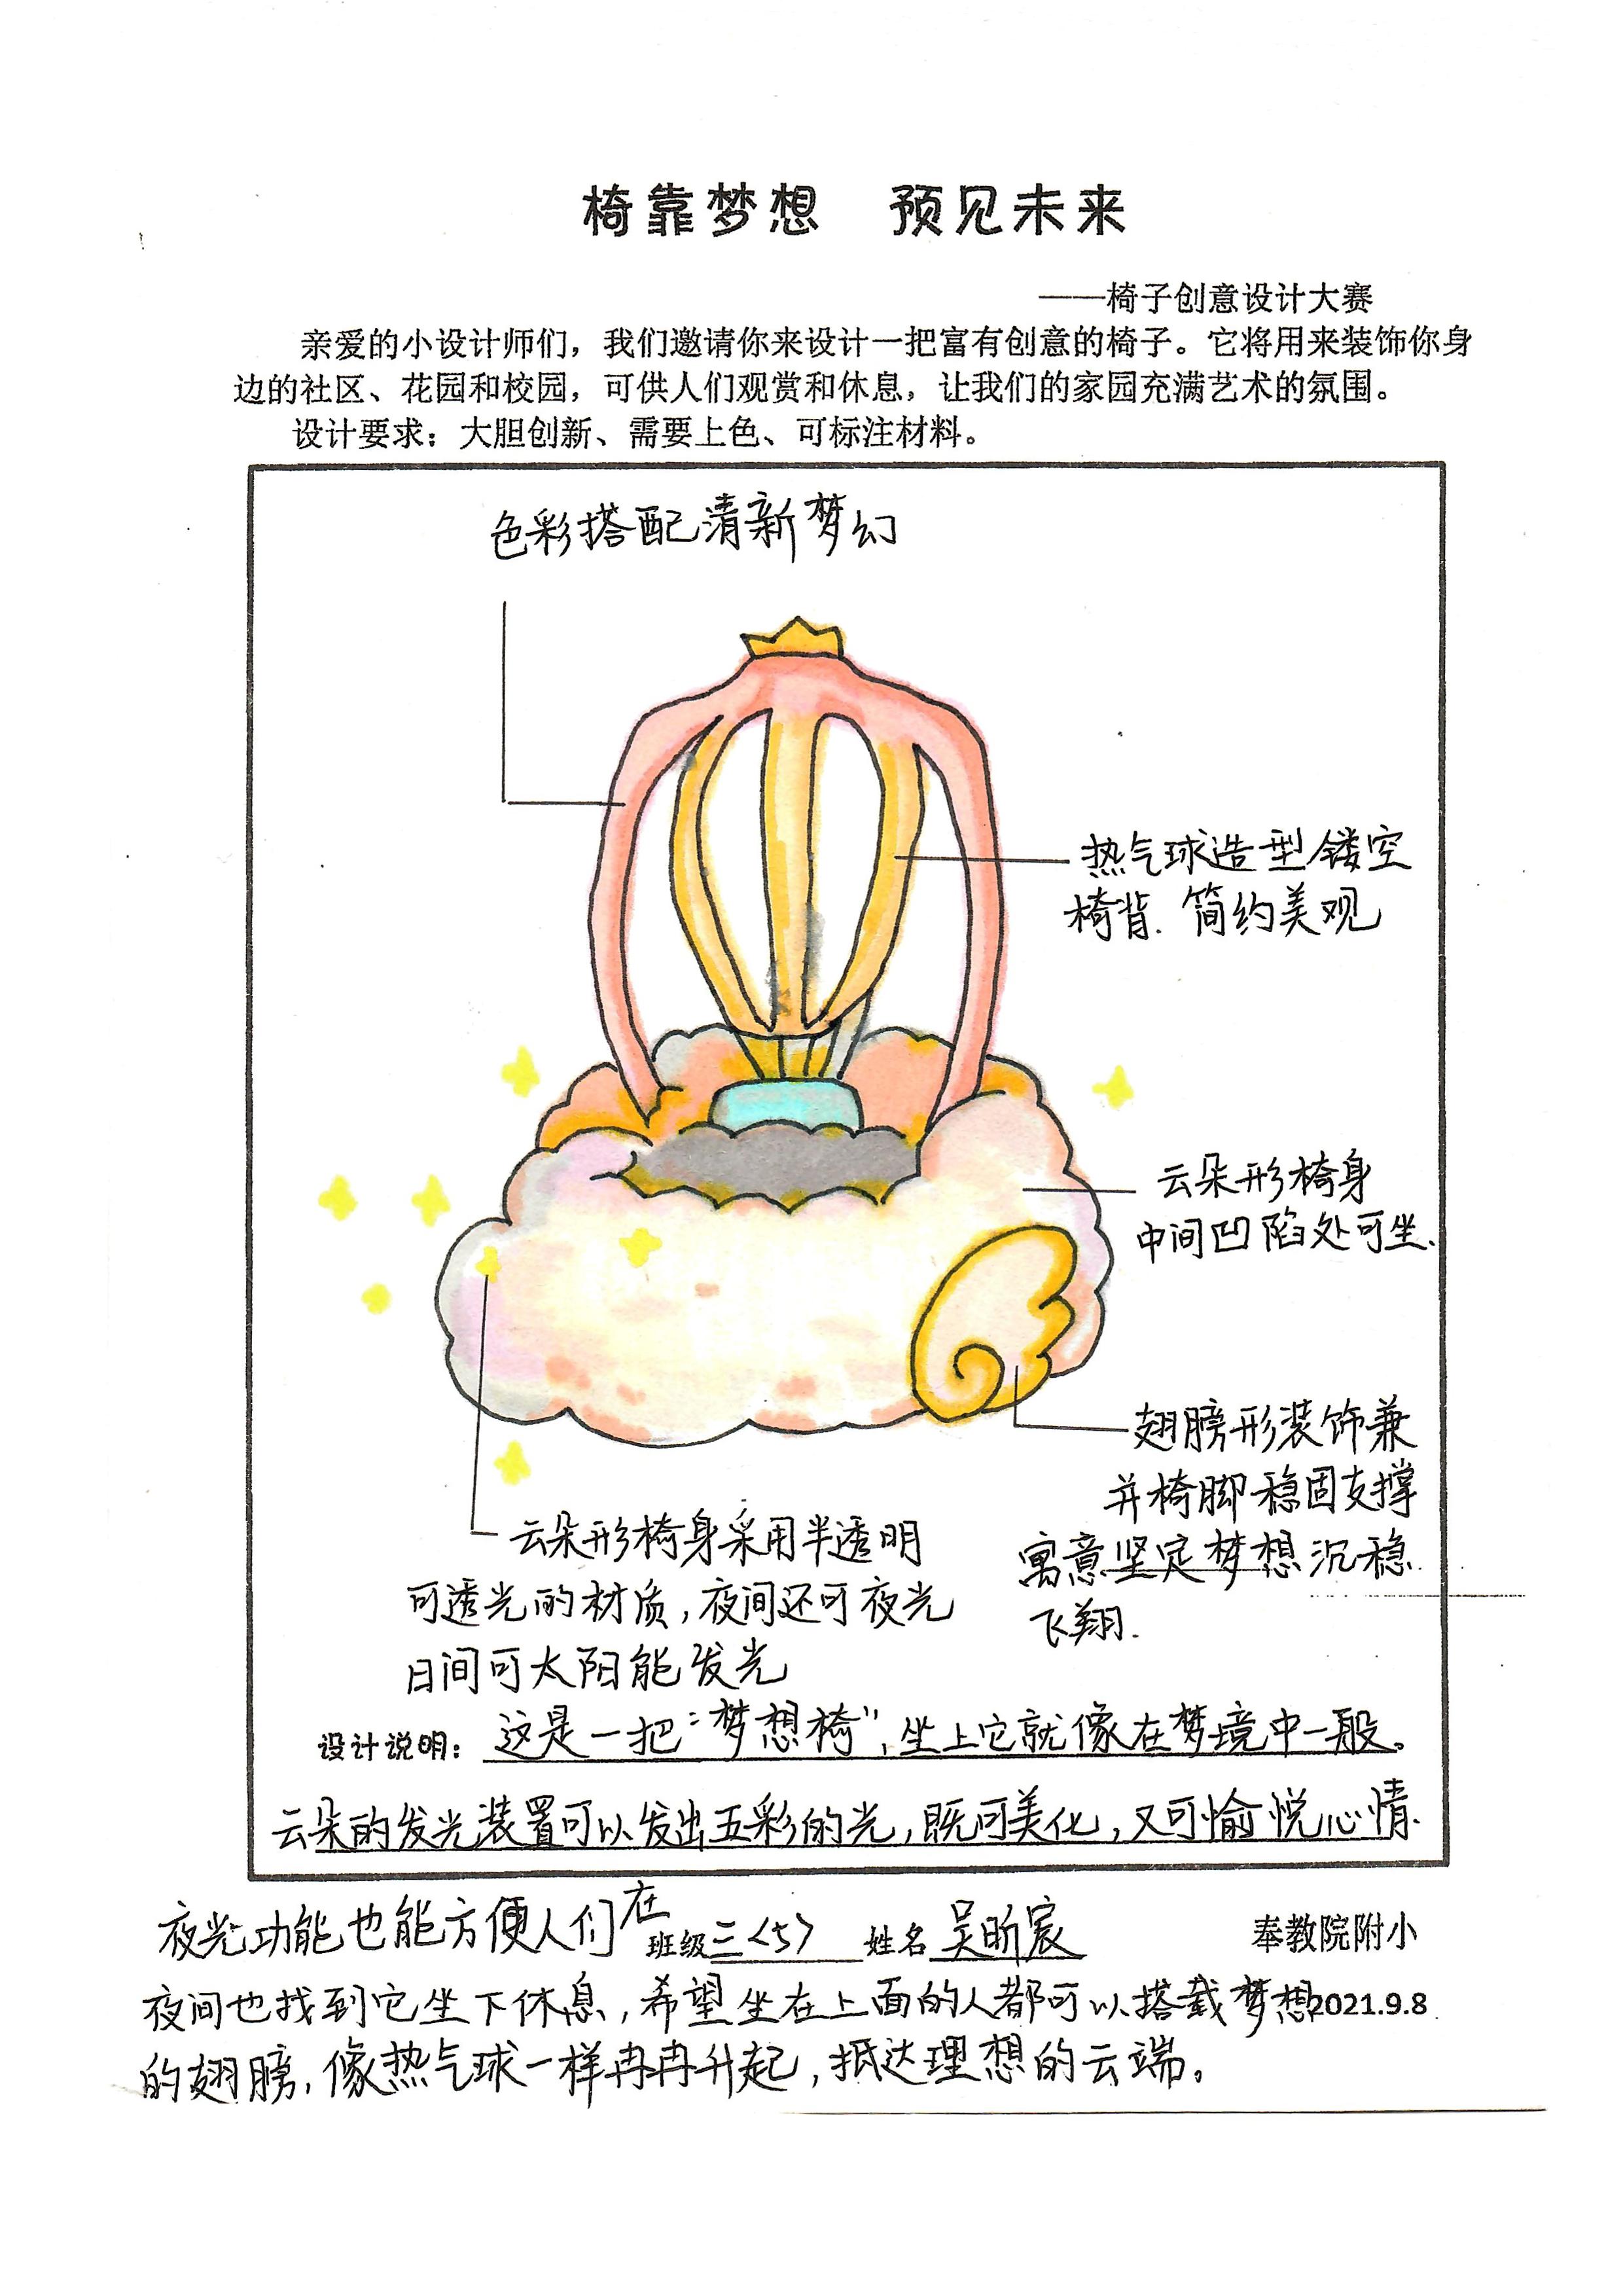 椅靠梦想 预见未来
——椅子创意设计大赛
亲爱的小设计师们，我们邀请你来设计一把富有创意的椅子。它将用来装饰你身
边的社区、花园和校园，可供人们观赏和休息，让我们的家园充满艺术的氛围。
设计要求：大胆创新、需要上色、可标注材料。
色彩搭配清新梦幻
热气球造型镂空
椅背. 简约美观
云朵形椅身
中间凹陷处可坐.
翅膀形装饰兼
并椅脚稳固支撑
寓意坚定梦想沉稳
飞翔.
云朵形椅身采用半透明
可透光的材质,夜间还可夜光
日间可太阳能发光
设计说明：这是一把“梦想椅”,坐上它就像在梦境中一般。
云朵的发光装置可以发出五彩的光,既可美化,又可愉悦心情.
夜光功能也能方便人们在
班级三<5> 姓名吴昕宸 奉教院附小
夜间也找到它坐下休息,希望坐在上面的人都可以搭载梦想
2021.9.8
的翅膀,像热气球一样冉冉升起,抵达理想的云端。